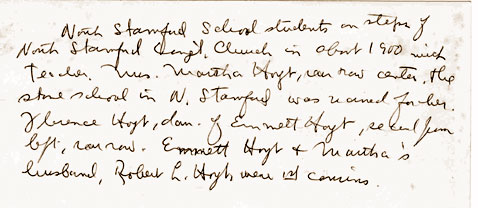 North Stamford School students on steps of
North Stamford Congl. Church in about 1900 with
teacher. Mrs. Martha Hoyt, rear row center, the
stone school in N. Stamford was named for her.
Florence Hoyt, dau. of Emmett Hoyt, second from
left, rear row. Emmett Hoyt & Martha's
husband, Robert L. Hoyt were 1st cousins.